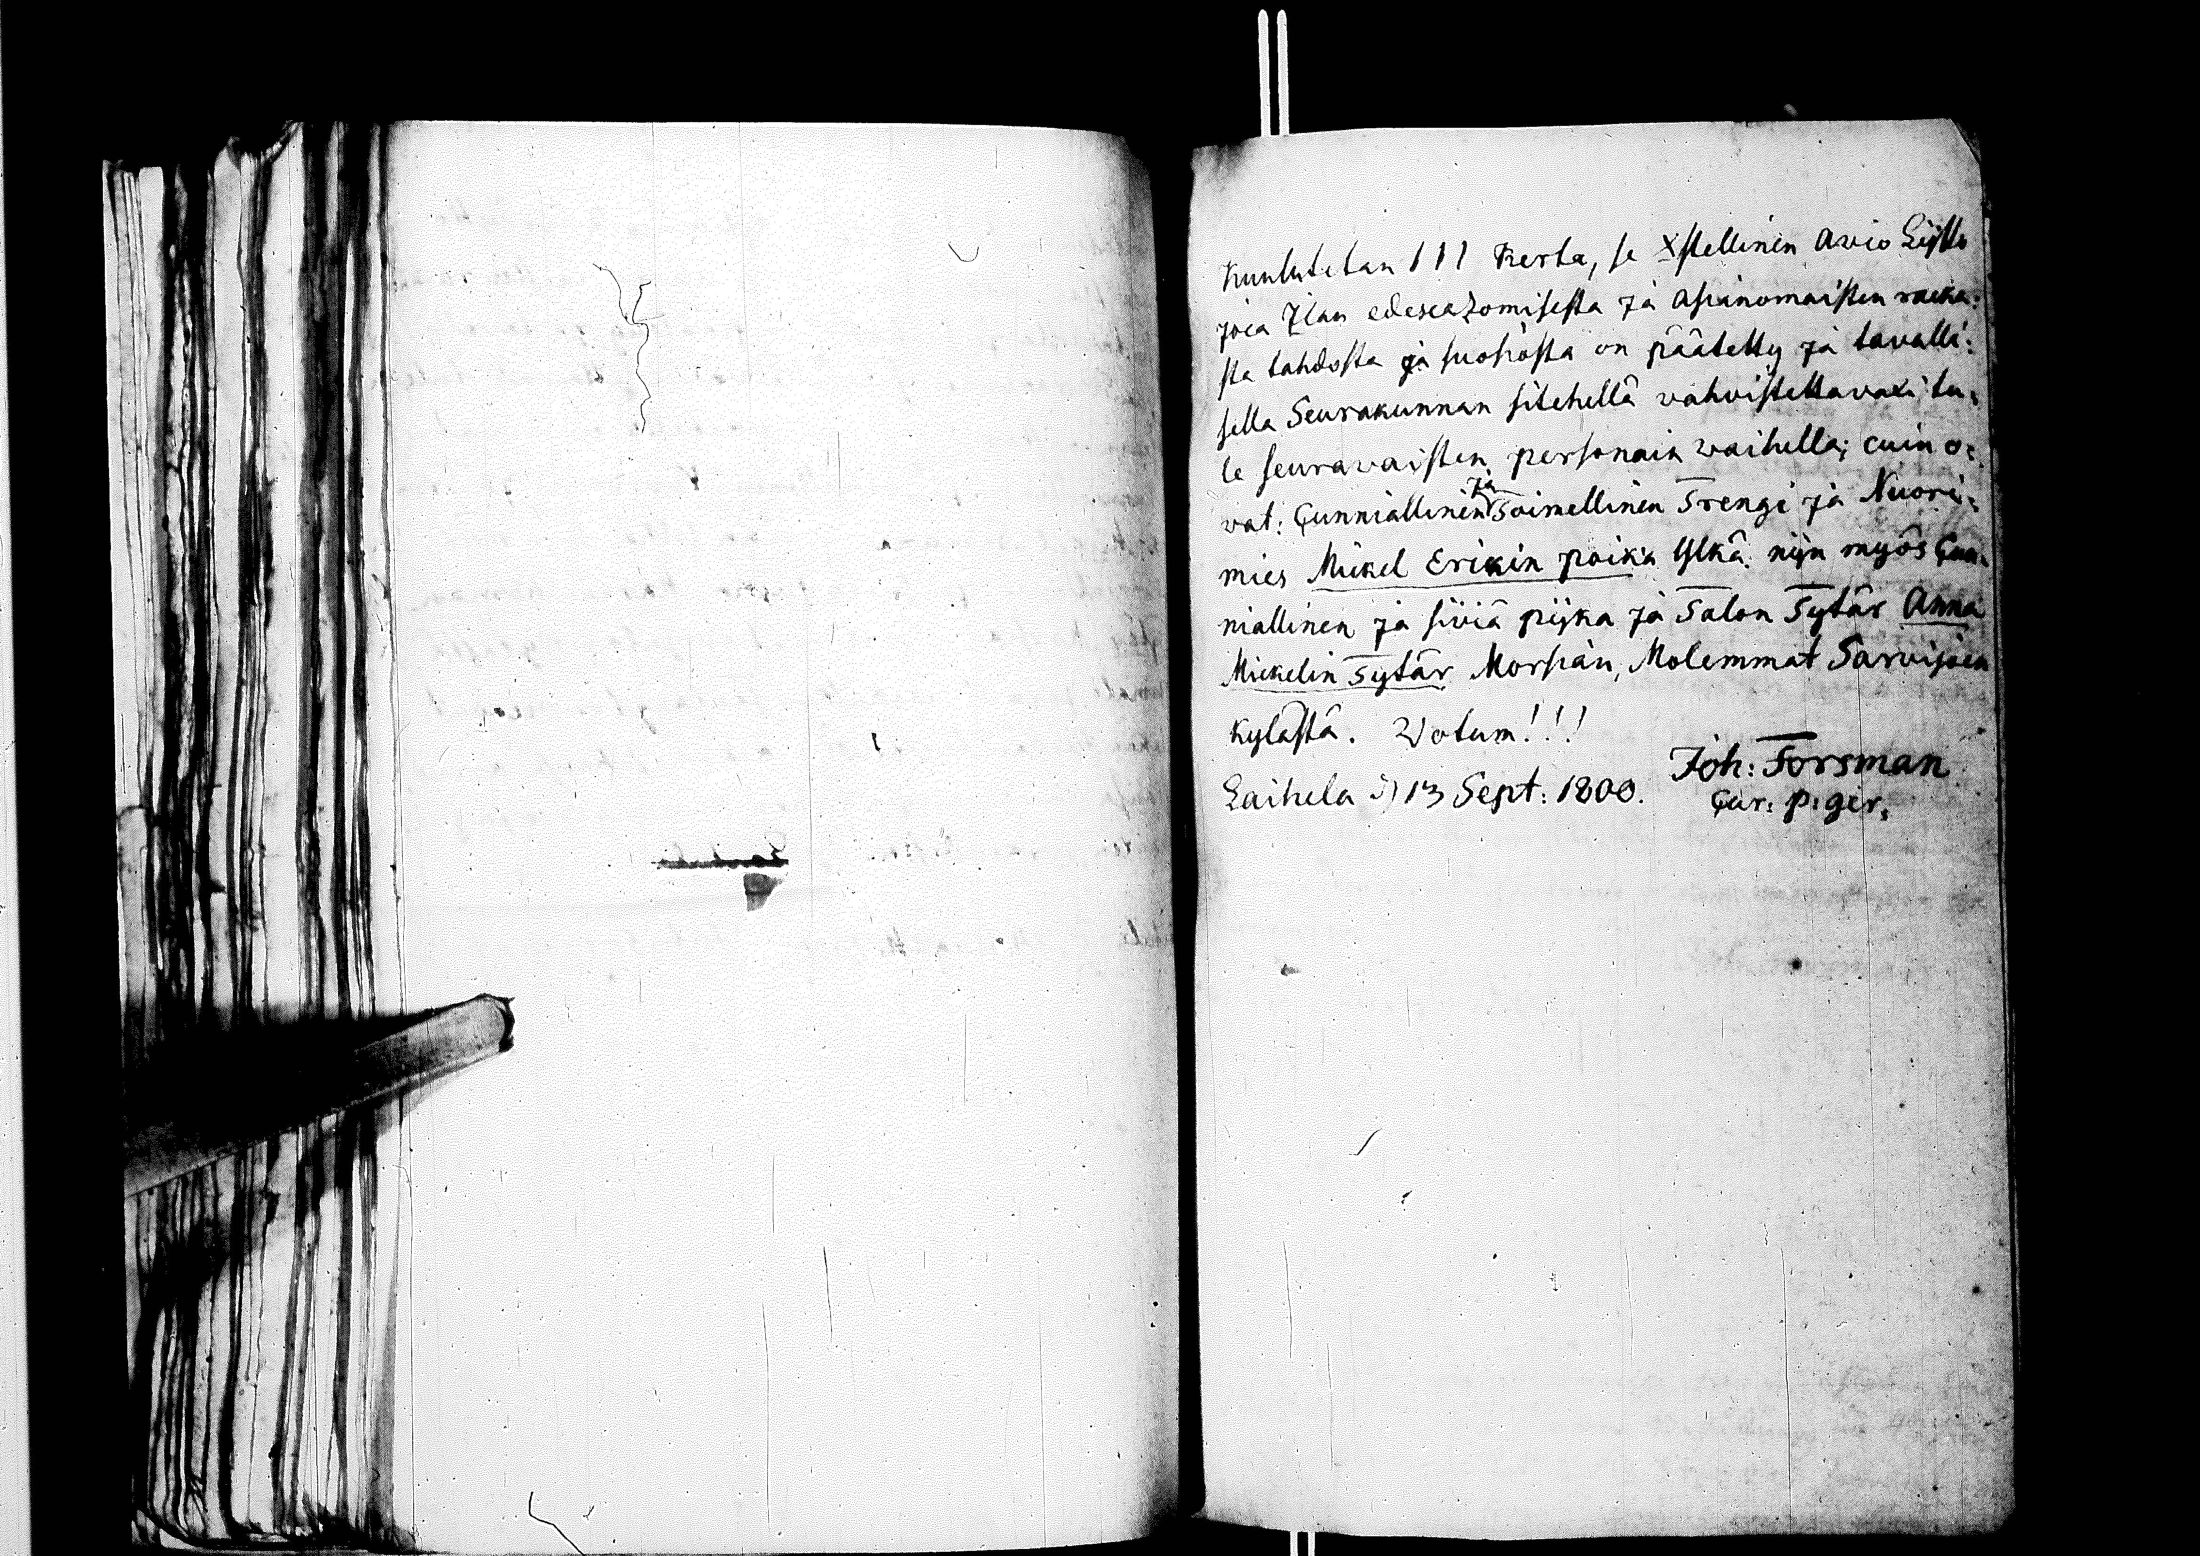 Kuulutetan 111 Kerta, se Xstellinen Avio Lijtto
joca Ilan edescazomisesta ja Asianomaisten racka:
sta tahdosta ja suosiosta on päätetty ja tavalli:
sella Seurakunnan sitehellä vahvistettavaxi tu:
le seuravaisten personain waihella; cuin o:
vat: Cunniallinen ja Toimellinen Trengi ja Nuori:
mies Mickel Erikin poika Ylkä. nijn myös Cun:
niallinen ja siviä pijka ja Talon Tytär Anna
Mickelin Tytär Morsian, Molemmat Sarvijoen
kylästä. Votum!!!
Laihela d) 13 Sept: 1800.
Joh: Forsman
Cur: p: ger.